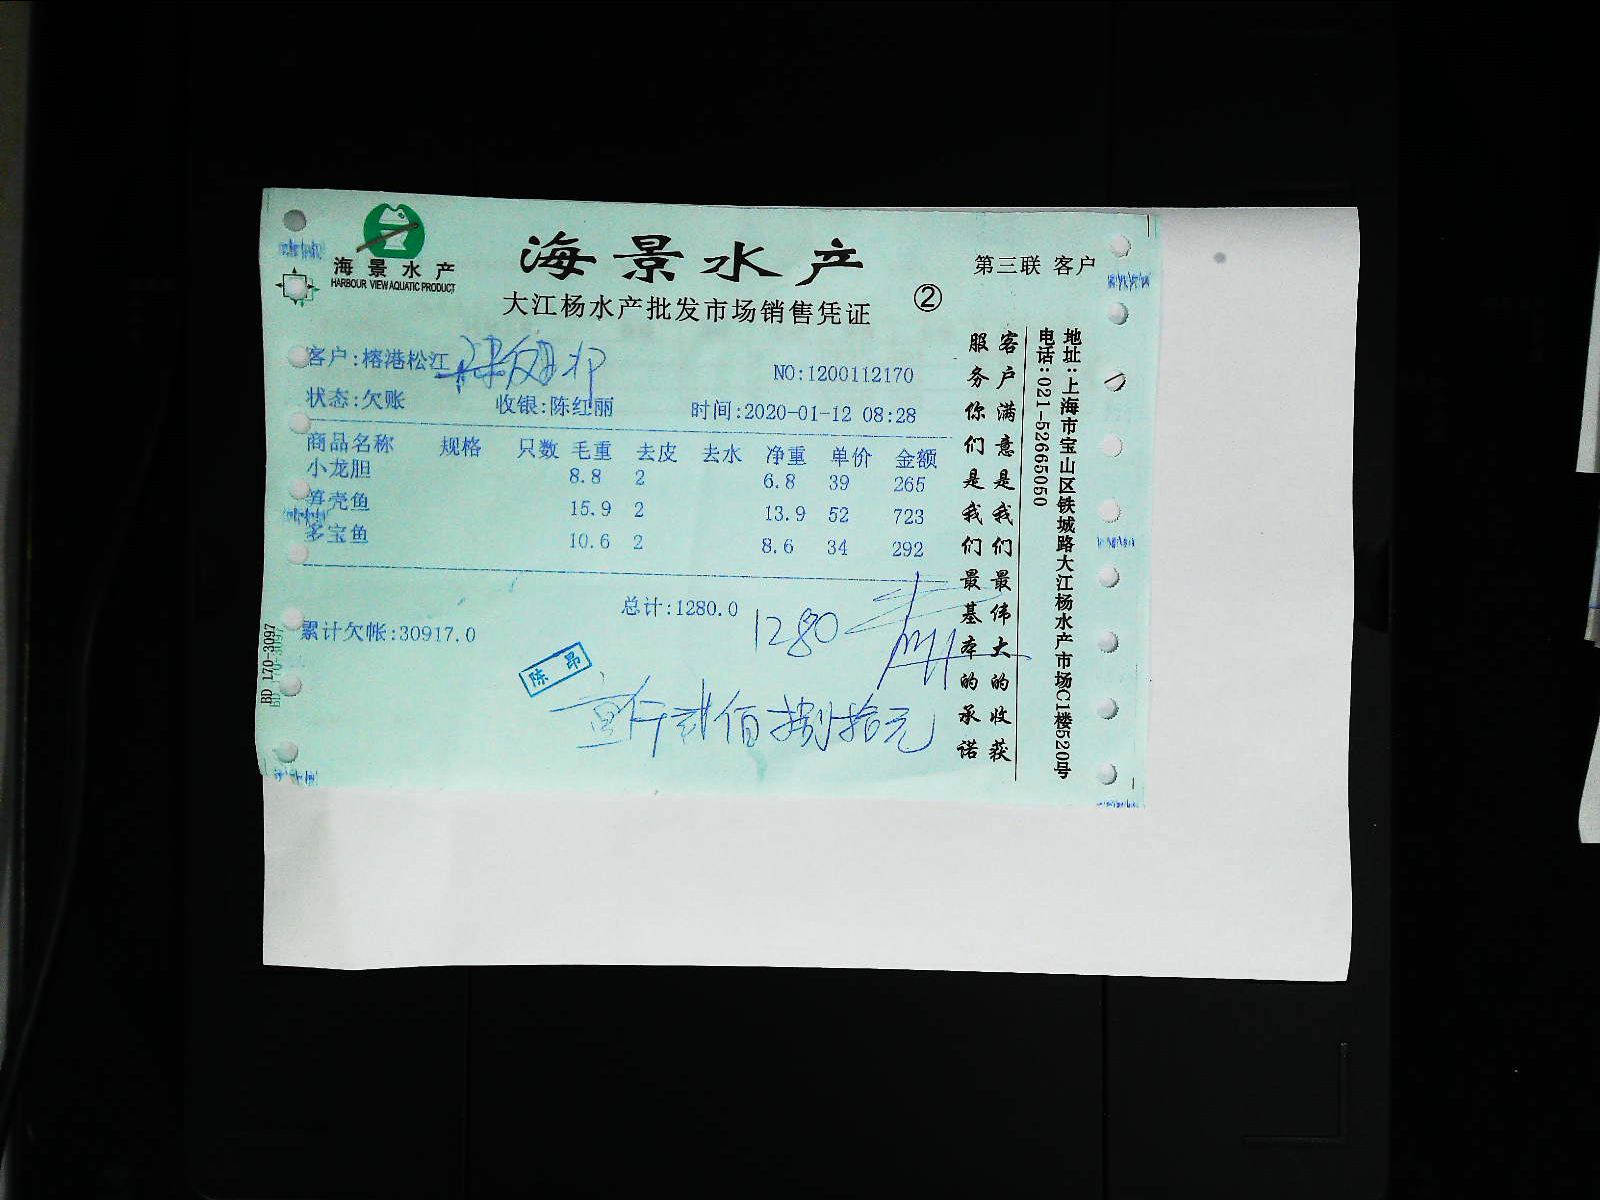 海景水产
HARBOUR VIEW AQUATIC PRODUCT
海景水产
大江杨水产批发市场销售凭证
②
第三联 客户
客户:榕港松江
NO:1200112170
状态:欠账 收银:陈红丽 时间:2020-01-12 08:28
商品名称 规格 只数 毛重 去皮 去水 净重 单价 金额
小龙胆 8.8 2 6.8 39 265
笋壳鱼 15.9 2 13.9 52 723
多宝鱼 10.6 2 8.6 34 292
总计:1280.0
1280
累计欠帐:30917.0
陈昂
壹仟贰佰捌拾元
客户满意是我们最伟大的收获
服务你们是我们最基本的承诺
地址:上海市宝山区铁城路大江杨水产市场C1楼520号
电话:021-52665050
BD 170-3097